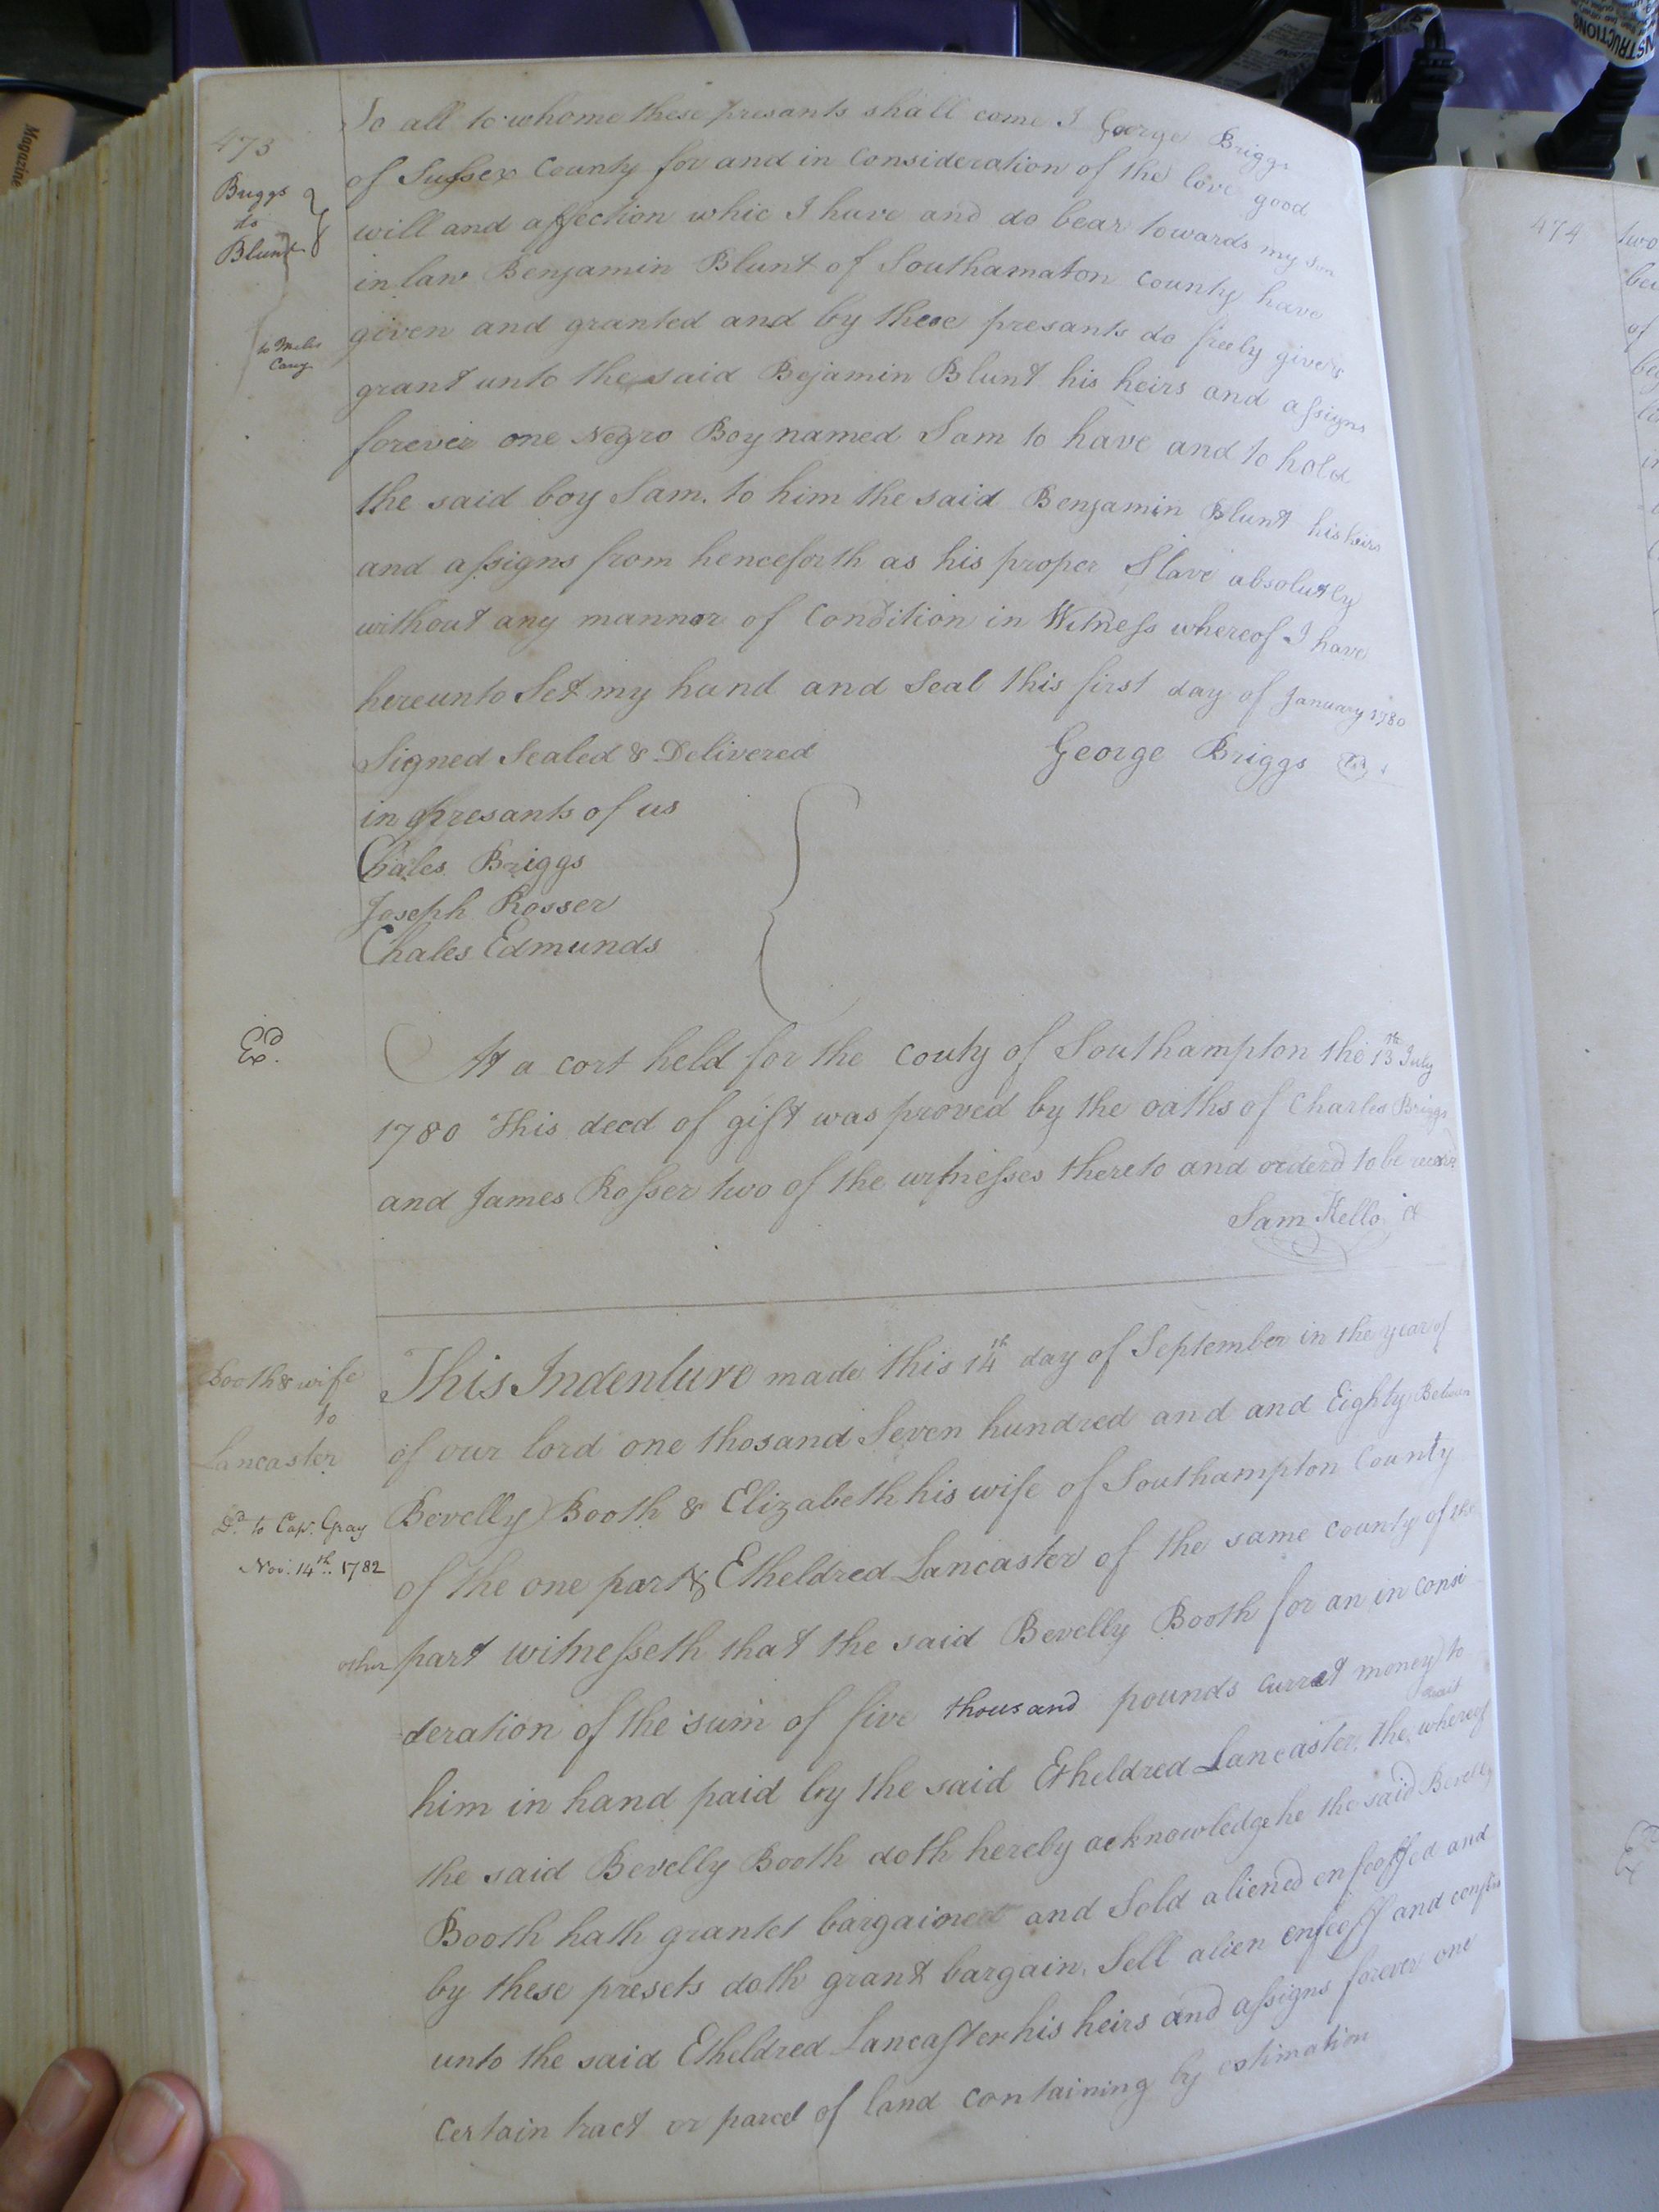 473
Briggs
to
Blunt
to Miles
Cary
To all to whome these presants shall come I George Briggs
of Sussex County for and in Consideration of the love good
will and affection whic I have and do bear towards my son
in law Benjamin Blunt of Southamaton County have
given and granted and by these presants do freely give &
grant unto the said Bejamin Blunt his heirs and assigns
forever one Negro Boy named Sam to have and to hold
the said boy Sam. to him the said Benjamin Blunt his heirs
and assigns from henceforth as his proper Slave absolutly
without any mannor of Condition in Witness whereof I have
hereunto Set my hand and Seal this first day of January 1780
Signed Sealed & Delivered George Briggs
in presants of us
Chales Briggs
Joseph Rosser
Chales Edmunds
Exd.
At a cort held for the couty of Southampton the 13th July
1780 This deed of gift was proved by the oaths of Charles Briggs
and James Rosser two of the witnesses thereto and orderd to be
Sam Kello
Booth & wife
to
Lancaster
Dd. to Cap. Gray
Nov. 14th. 1782
This Indenture made this 14th day of September in the year of
of our lord one thosand Seven hundred and and Eighty Between
Bevelly Booth & Elizabeth his wife of Southampton County
of the one part & Etheldred Lancaster of the same County of the
other part witnesseth that the said Bevelly Booth for an in Consi
deration of the sum of five thousand pounds currat money to
him in hand paid by the said Etheldred Lancaster, the whereof
the said Bevelly Booth doth hereby acknowledge he the said Bevelly
Booth hath grantet bargained and Sold aliened enfeoffed and
by these presets doth grant bargain, Sell alien enfeoff and
unto the said Etheldred Lancaster his heirs and assigns forever one
certain tract or parcel of land containing by estimation
474
two
of
Exd
Magazine
INSTRUCTIONS